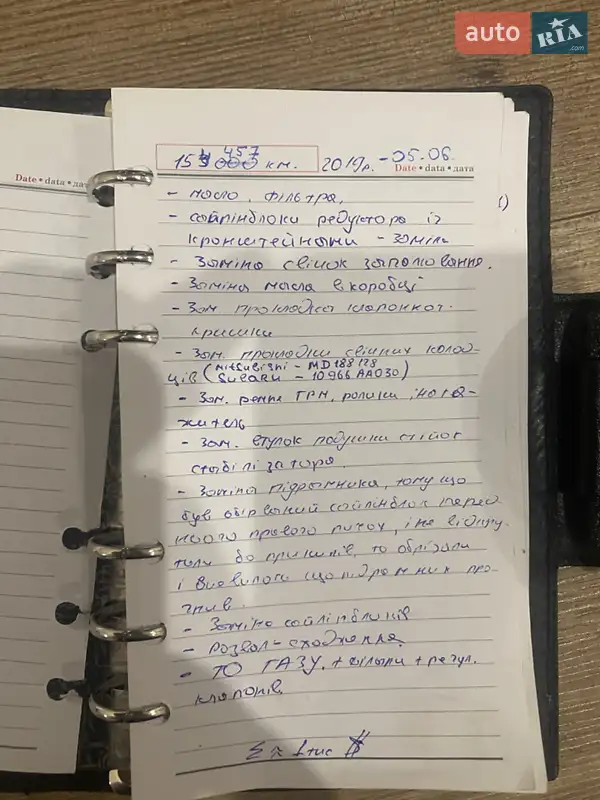 auto RIA .com
Date • data • дата
154 457 км. 2019р. -05.06.
Date • data • дата
- масло, фільтра,
- сайлінблоки редуктора із
кронштейнами - заміна
- Заміна свічок запалювання.
- Заміна масла в коробці
- Зам. прокладки клапонної
кришки
- Зам. прокладки свічних колод-
ців (Mitsubishi - MD188128
Subaru - 10966 AA030)
- Зам. ремня ГРМ, ролики, натя-
житель
- Зам. втулок подушки стійок
стабілізатора.
- Заміна підрамника, тому що
був обірваний сайлінблок перед-
нього правого ричага, і не відкру-
тили до прицілів, то обрізали
і виявилося що підрамник про-
гнив.
- Заміна сайлінблоків
- розвал-сходження.
- ТО ГАЗУ. + фільтри + регул.
клапонів.
Σ ≈ 1 тис $